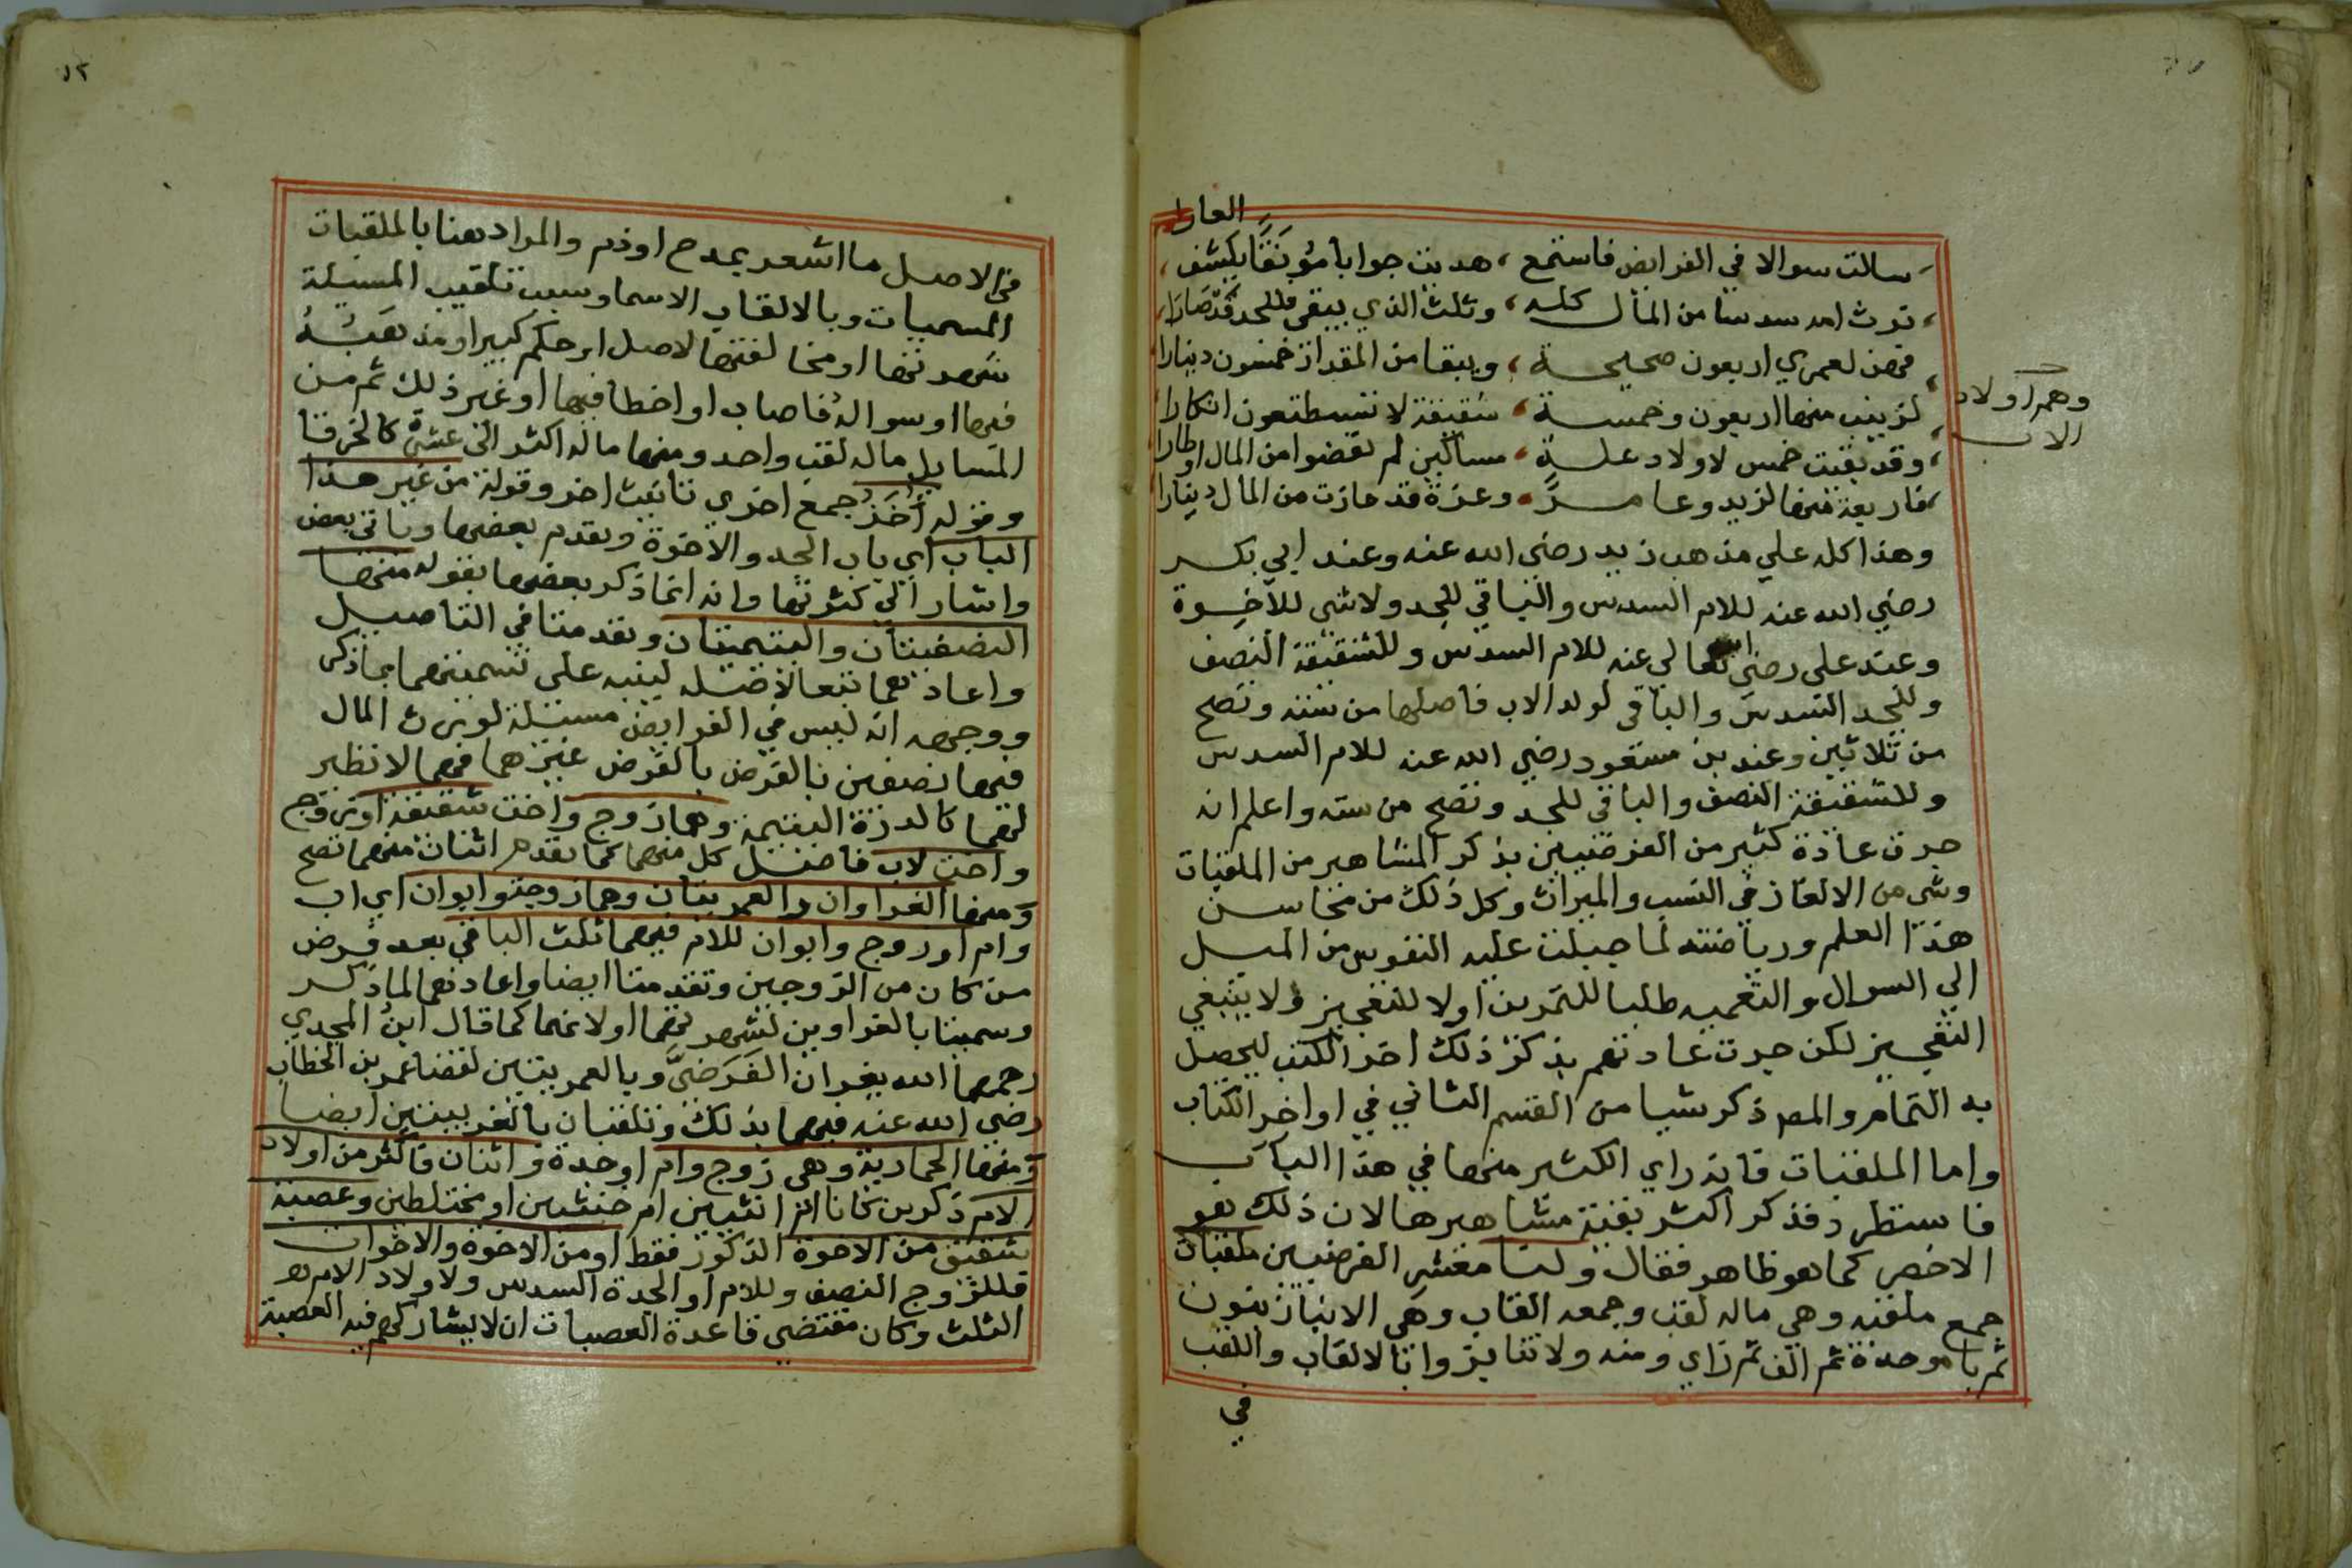 العارا
سالت سوالا في الفرايض فاستمع ، هديت جوابا مؤنقا يكشف ،
تورث امه سدسا من المال كله ، وثلث الذي يبقى فللجد قد صارا ،
فهن لعمري اربعون صحيحة ، ويبقا من المقدار خمسون دينارا
لزينب منها اربعون وخمسة ، شقيقة لا تسطتعون انكارا
وقد بقيت خمس لاولاد علة ، مساكين لم يقضوا من المال اوطارا
فاربعة منها لزيد وعامر ، وعزة قد حازت من المال دينارا
وهم اولاد
الاب
وهذا كله علي مذهب زيد رضى الله عنه وعند ابي بكر
رضي الله عنه للام السدس والباقي للجد ولا شى للاخوة
وعند على رضى الله تعالي عنه للام السدس وللشقيقة النصف
وللجد السدس والباقى لولد الاب فاصلها من سته وتصح
من ثلاثين وعند بن مسعود رضي الله عنه للام السدس
وللشقيقة النصف والباقى للجد وتصح من سته واعلم انه
جرت عادة كثير من الفرضيين بذكر المشاهير من الملقبات
وشى من الالغاز في النسب والميراث وكل ذلك من محاسن
هذا العلم ورياضته لما جبلت عليه النفوس من الميل
الي السوال والتعميه طلبا للتمرين اولا للتعجيز ولا ينبغي
التعجيز لكن جرت عادتهم بذكر ذلك اخر الكتب ليحصل
به التمام والمص ذكر شيا من القسم الثاني في اواخر الكتاب
واما الملقبات فانه راي الكثير منها في هذا الباب
فاستطرد فذكر اكثر بقية مشاهيرها لان ذلك هو
الاخصر كما هو ظاهر فقال ولنا معشر الفرضيين ملقبات
جمع ملقبه وهي ماله لقب وجمعه القاب وهى الانباز بنون
ثم با موحدة ثم الف ثم زاي ومنه ولا تنابزوا بالالقاب واللقب
في
١٢
في الاصل ما اشعر بمدح او ذم والمراد هنا بالملقبات
المسميات وبالالقاب الاسما وسبب تلقيب المسيلة
شهرتها او مخالفتها لاصل او حكم كبير او مذهبه
فيها او سواله فاصاب او اخطا فيها او غير ذلك ثم من
المسايل ماله لقب واحد ومنها ماله اكثر الى عشرة كالخرقا
وقوله أخر جمع اخرى تانيث اخر وقوله من غير هذا
الباب اي باب الجد والاخوة وتقدم بعضها وياتى بعض
واشار الي كثرتها وانه انما ذكر بعضها بقوله منها
النصفيتان واليتيمتان وتقدمتا في التاصيل
واعادهما تبعا لاصله لينبه على تسميتهما بما ذكر
ووجهه انه ليس في الفرايض مسئلة لورث المال
فيها نصفين بالفرض غيرهما فهما لا نظير
لهما كالدرة اليتيمة وهما زوج واخت شقيقة او زوج
واخت لاب فاصل كل منهما كما تقدم اثنان منهما تصح
ومنها الغراوان والعمريتان وهما زوجة وابوان اي اب
وام او زوج وابوان للام فيهما ثلث الباقي بعد فرض
من كان من الزوجين وتقدمتا ايضا واعادهما لما ذكر
وسميتا بالغراوين لشهرتهما اولا نهما كما قال ابن المجدي
رحمهما الله يغران الفرضي وبالعمريتين لقضا عمر بن الخطاب
رضي الله عنه فيهما بذلك وتلقبان بالغريبتين ايضا
ومنها الحمارية وهى زوج وام او جدة واثنان فاكثر من اولاد
الام ذكرين كانا او انثيين ام خنثيين او مختلطين وعصبة
شقيق من الاخوة الذكور فقط او من الاخوة والاخوات
فللزوج النصف وللام او الجدة السدس ولاولاد الام
الثلث وكان مقتضي قاعدة العصبات ان لا يشاركهم فيه العصبة